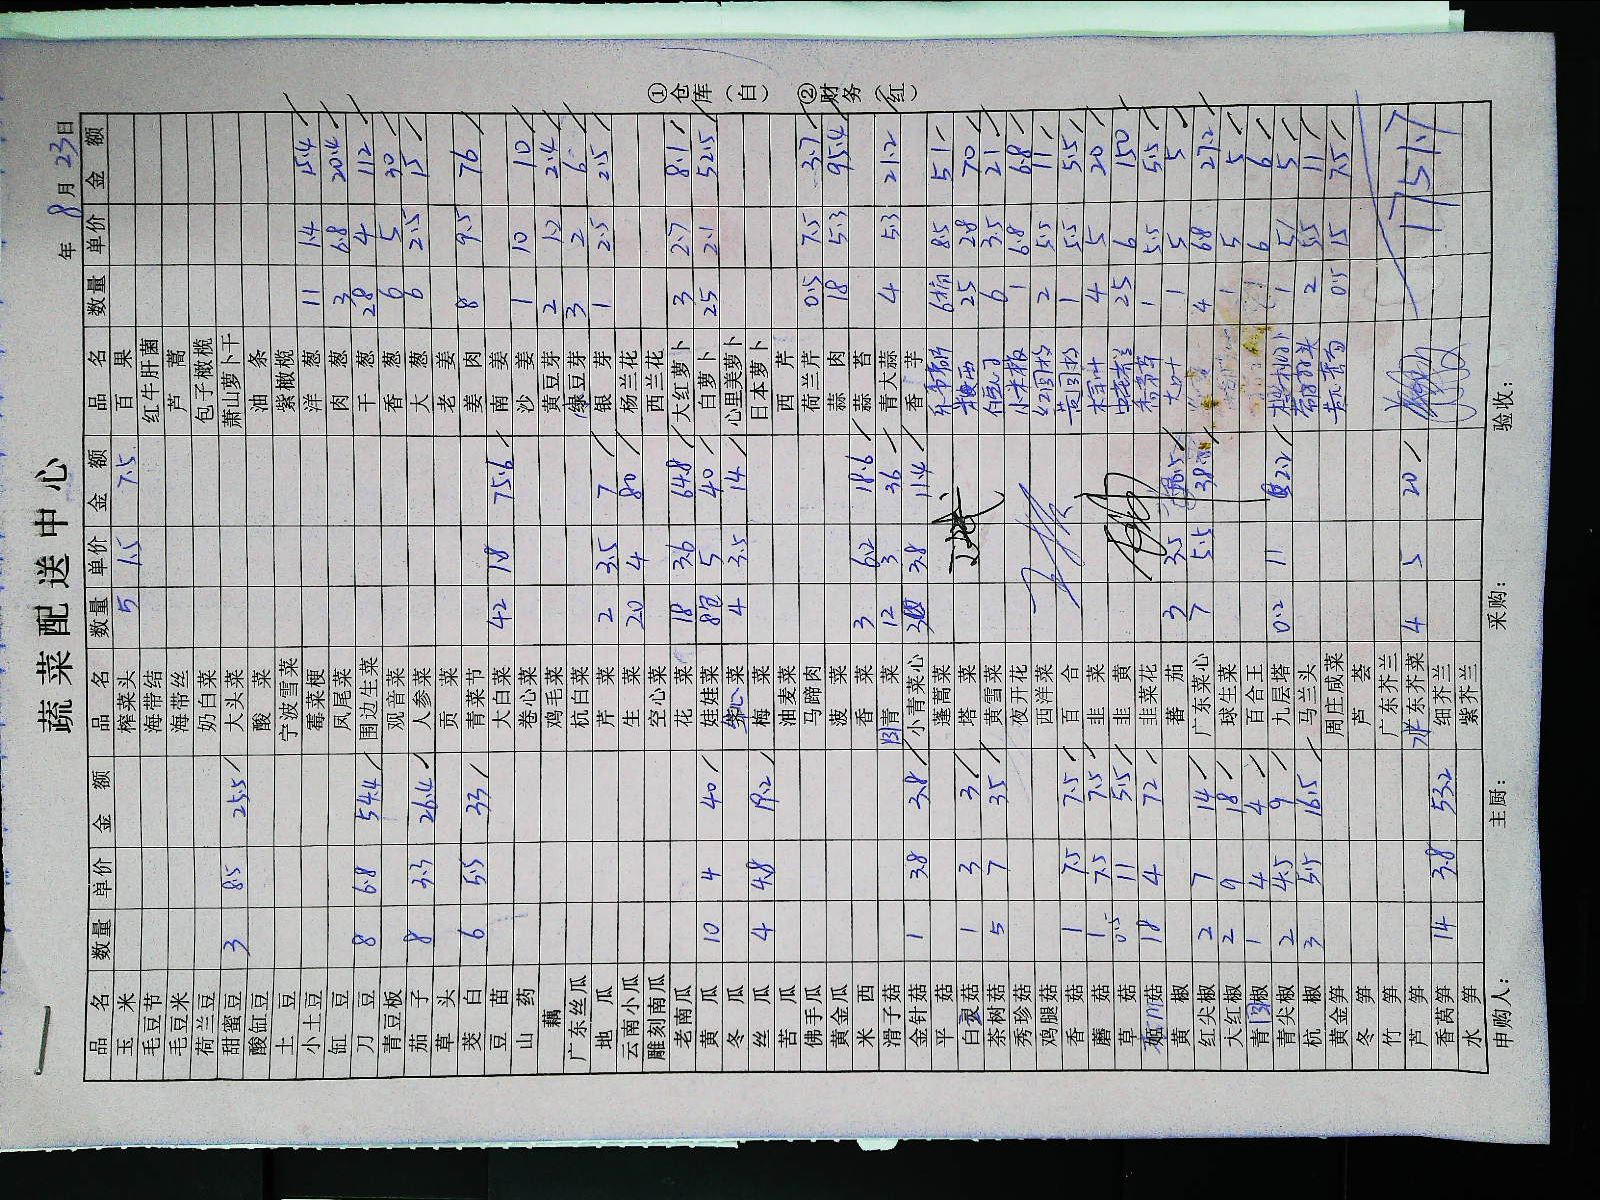 蔬菜配送中心
年 8月23日
品名 数量 单价 金额 品名 数量 单价 金额 品名 数量 单价 金额
玉米 榨菜头 5 1.5 7.5 百果
毛豆节 海带结 红牛肝菌
毛豆米 海带丝 芦蒿
荷兰豆 奶白菜 包子橄榄
甜蜜豆 3 8.5 25.5 大头菜 萧山萝卜干
酸缸豆 酸菜 油条
土豆 宁波雪菜 紫橄榄
小土豆 霉菜梗 洋葱 11 1.4 15.4
缸豆 凤尾菜 肉葱 3 6.8 20.4
刀豆 8 6.8 54.4 围边生菜 干葱 28 4 112
青豆板 观音菜 香葱 6 5 30
茄子 8 3.3 26.4 人参菜 大葱 6 2.5 15
草头 贡菜 老姜
茭白 6 5.5 33 青菜节 姜肉 8 9.5 76
豆苗 大白菜 42 1.8 75.6 南姜
山药 卷心菜 沙姜 1 10 10
藕 鸡毛菜 黄豆芽 2 1.2 2.4
广东丝瓜 杭白菜 绿豆芽 3 2 6
地瓜 芹菜 2 3.5 7 银芽 1 2.5 2.5
云南小瓜 生菜 20 4 80 杨兰花
雕刻南瓜 空心菜 西兰花
老南瓜 花菜 18 3.6 64.8 大红萝卜 3 2.7 8.1
黄瓜 10 4 40 娃娃菜 8包 5 40 白萝卜 25 2.1 52.5
冬瓜 菜 4 3.5 14 心里美萝卜
丝瓜 4 4.8 19.2 梅菜 日本萝卜
苦瓜 油麦菜 西芹
佛手瓜 马蹄肉 荷兰芹 0.5 7.5 3.7
黄金瓜 菠菜 蒜肉 18 5.3 95.4
米西 香菜 3 6.2 18.6 蒜苔
滑子菇 青菜 12 3 36 青大蒜 4 5.3 21.2
金针菇 1 3.8 3.8 小青菜心 3 3.8 11.4 香芋
平菇 蓬蒿菜 6 8.5 51
白灵菇 1 3 3 塔菜 25 2.8 70
茶树菇 5 7 35 黄雪菜 6 3.5 21
秀珍菇 夜开花 小米椒 1 6.8 6.8
鸡腿菇 西洋菜 红圆椒 2 5.5 11
香菇 1 7.5 7.5 百合 黄圆椒 1 5.5 5.5
蘑菇 1 7.5 7.5 韭菜 4 5 20
草菇 0.5 11 5.5 韭黄 25 6 150
菇 18 4 72 韭菜花 1 5.5 5.5
黄椒 蕃茄 3 3.5 大叶 1 5 5
红尖椒 2 7 14 广东菜心 7 5.5 38.5 4 6.8 27.2
大红椒 2 9 18 球生菜 1 5 5
青椒 1 4 4 百合王 6 6
青尖椒 2 4.5 9 九层塔 0.2 11 2.2 1 5 5
杭椒 3 5.5 16.5 马兰头 2 5.5 11
黄金笋 周庄成菜 0.5 15 7.5
冬笋 芦荟
竹笋 广东芥兰
芦笋 广东芥菜 4 5 20
香莴笋 14 3.8 53.2 细芥兰 1751.7
水笋 紫芥兰
申购人： 主厨： 采购： 验收：
①仓库（白） ②财务（红）